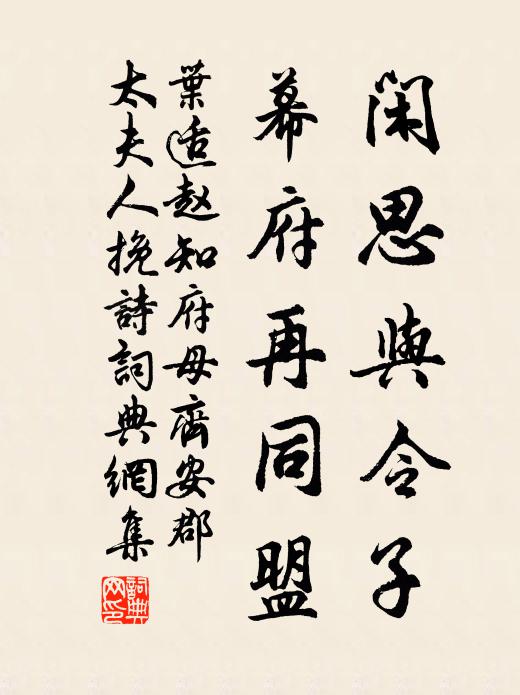 閑思與令子
幕府再同盟
葉适赵知府母齊安郡
太夫人挽詩詞典網集